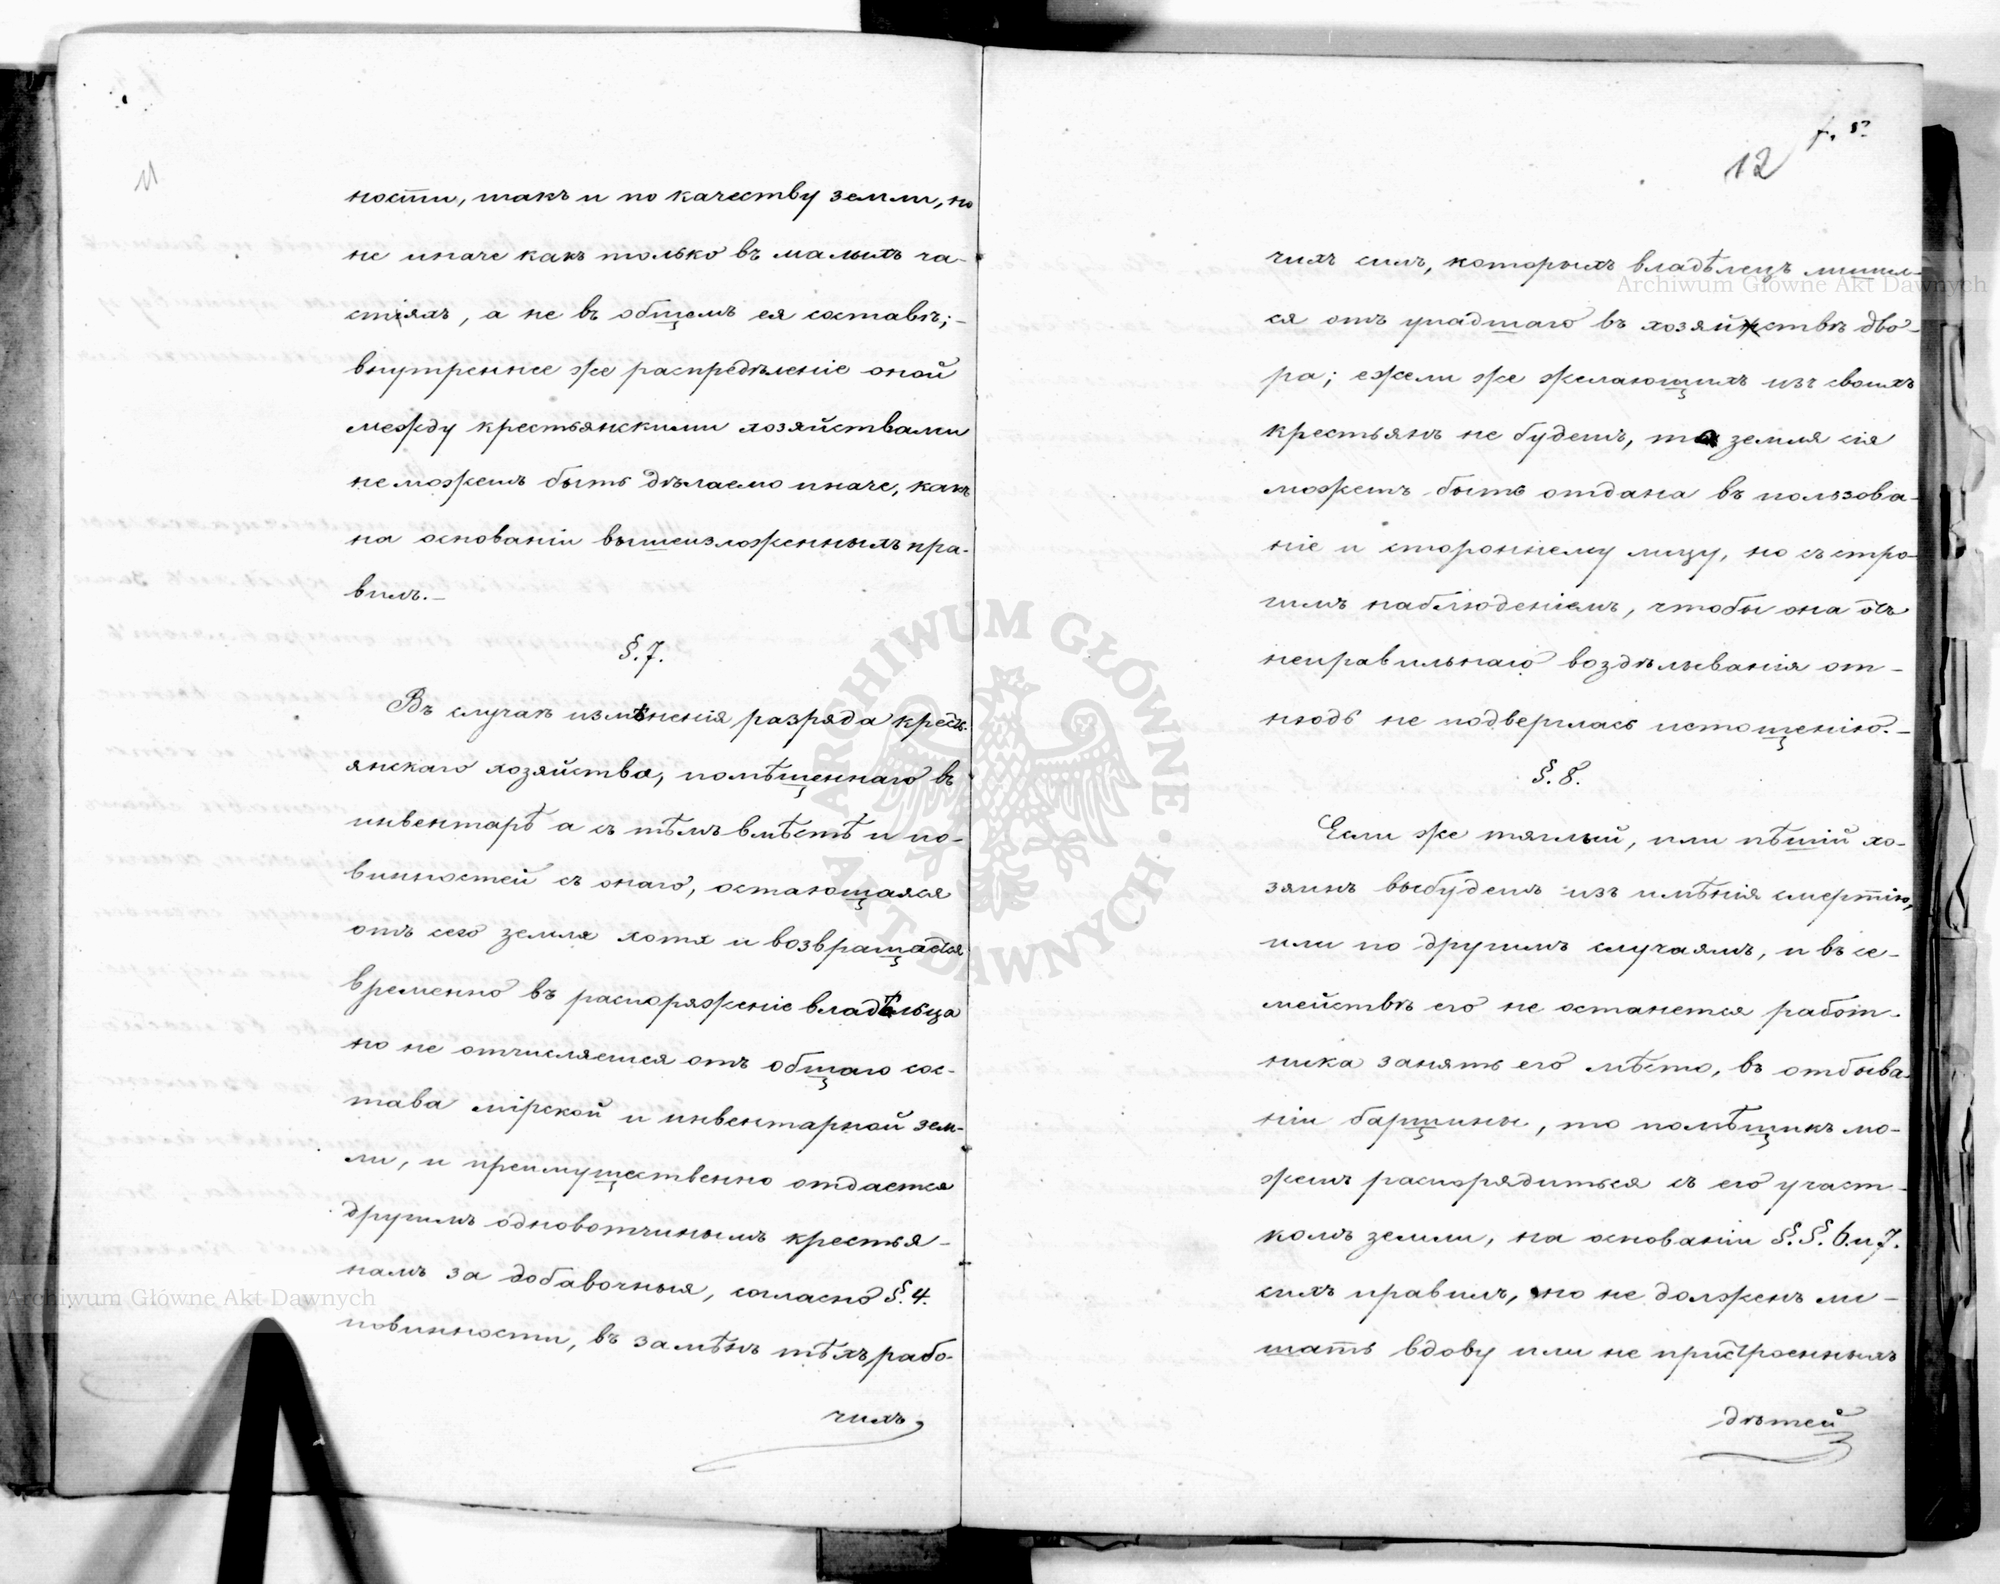 11
ности, такъ и по качеству земли, но
не иначе какъ только въ малыхъ ча-
стяхъ, а не въ общемъ ея составѣ;-
внутреннее же распредѣленіе оной
между крестьянскими хозяйствами
не можетъ быть дѣлаемо иначе, какъ
на основаніи вышеизложенныхъ пра-
вилъ.-
§. 7.
Въ случаѣ измѣненія разряда кресть-
янскаго хозяйства, помѣщеннаго въ
инвентарѣ а съ тѣмъ вмѣстѣ и по-
винностей съ онаго, остающаяся
отъ сего земля хотя и возвращается
временно въ распоряженіе владѣльца
но не отчисляется отъ общаго сос-
тава мірской и инвентарной зем-
ли, и преимущественно отдается
другимъ одновотчинымъ крестья-
намъ за добавочныя, согласно §. 4.
повинности, въ замѣнъ тѣхъ рабо-
чихъ
12
чихъ силъ, которыхъ владѣлецъ лишил-
ся отъ упадшаго въ хозяйствѣ дво-
ра; ежели же желающихъ изъ своихъ
крестьянъ не будетъ, то земля сія
можетъ быть отдана въ пользова-
ніе и стороннему лицу, но съ стро-
гимъ наблюденіемъ, чтобы она отъ
неправильнаго воздѣлыванія от-
нюдь не подверглась истощенію.-
§. 8.
Если же тяглый, или пѣшій хо-
зяинъ выбудетъ изъ имѣнія смертію,
или по другимъ случаямъ, и въ се-
мействѣ его не останется работ-
ника занять его мѣсто, въ отбыва-
ніи барщины, то помѣщикъ мо-
жетъ распорядиться съ его участ-
комъ земли, на основаніи §. §. 6. и 7.
сихъ правилъ, но не долженъ ли-
шать вдову или не пристроенныхъ
дѣтей
Archiwum Główne Akt Dawnych
Archiwum Główne Akt Dawnych
ARCHIWUM GŁÓWNE · AKT DAWNYCH ·